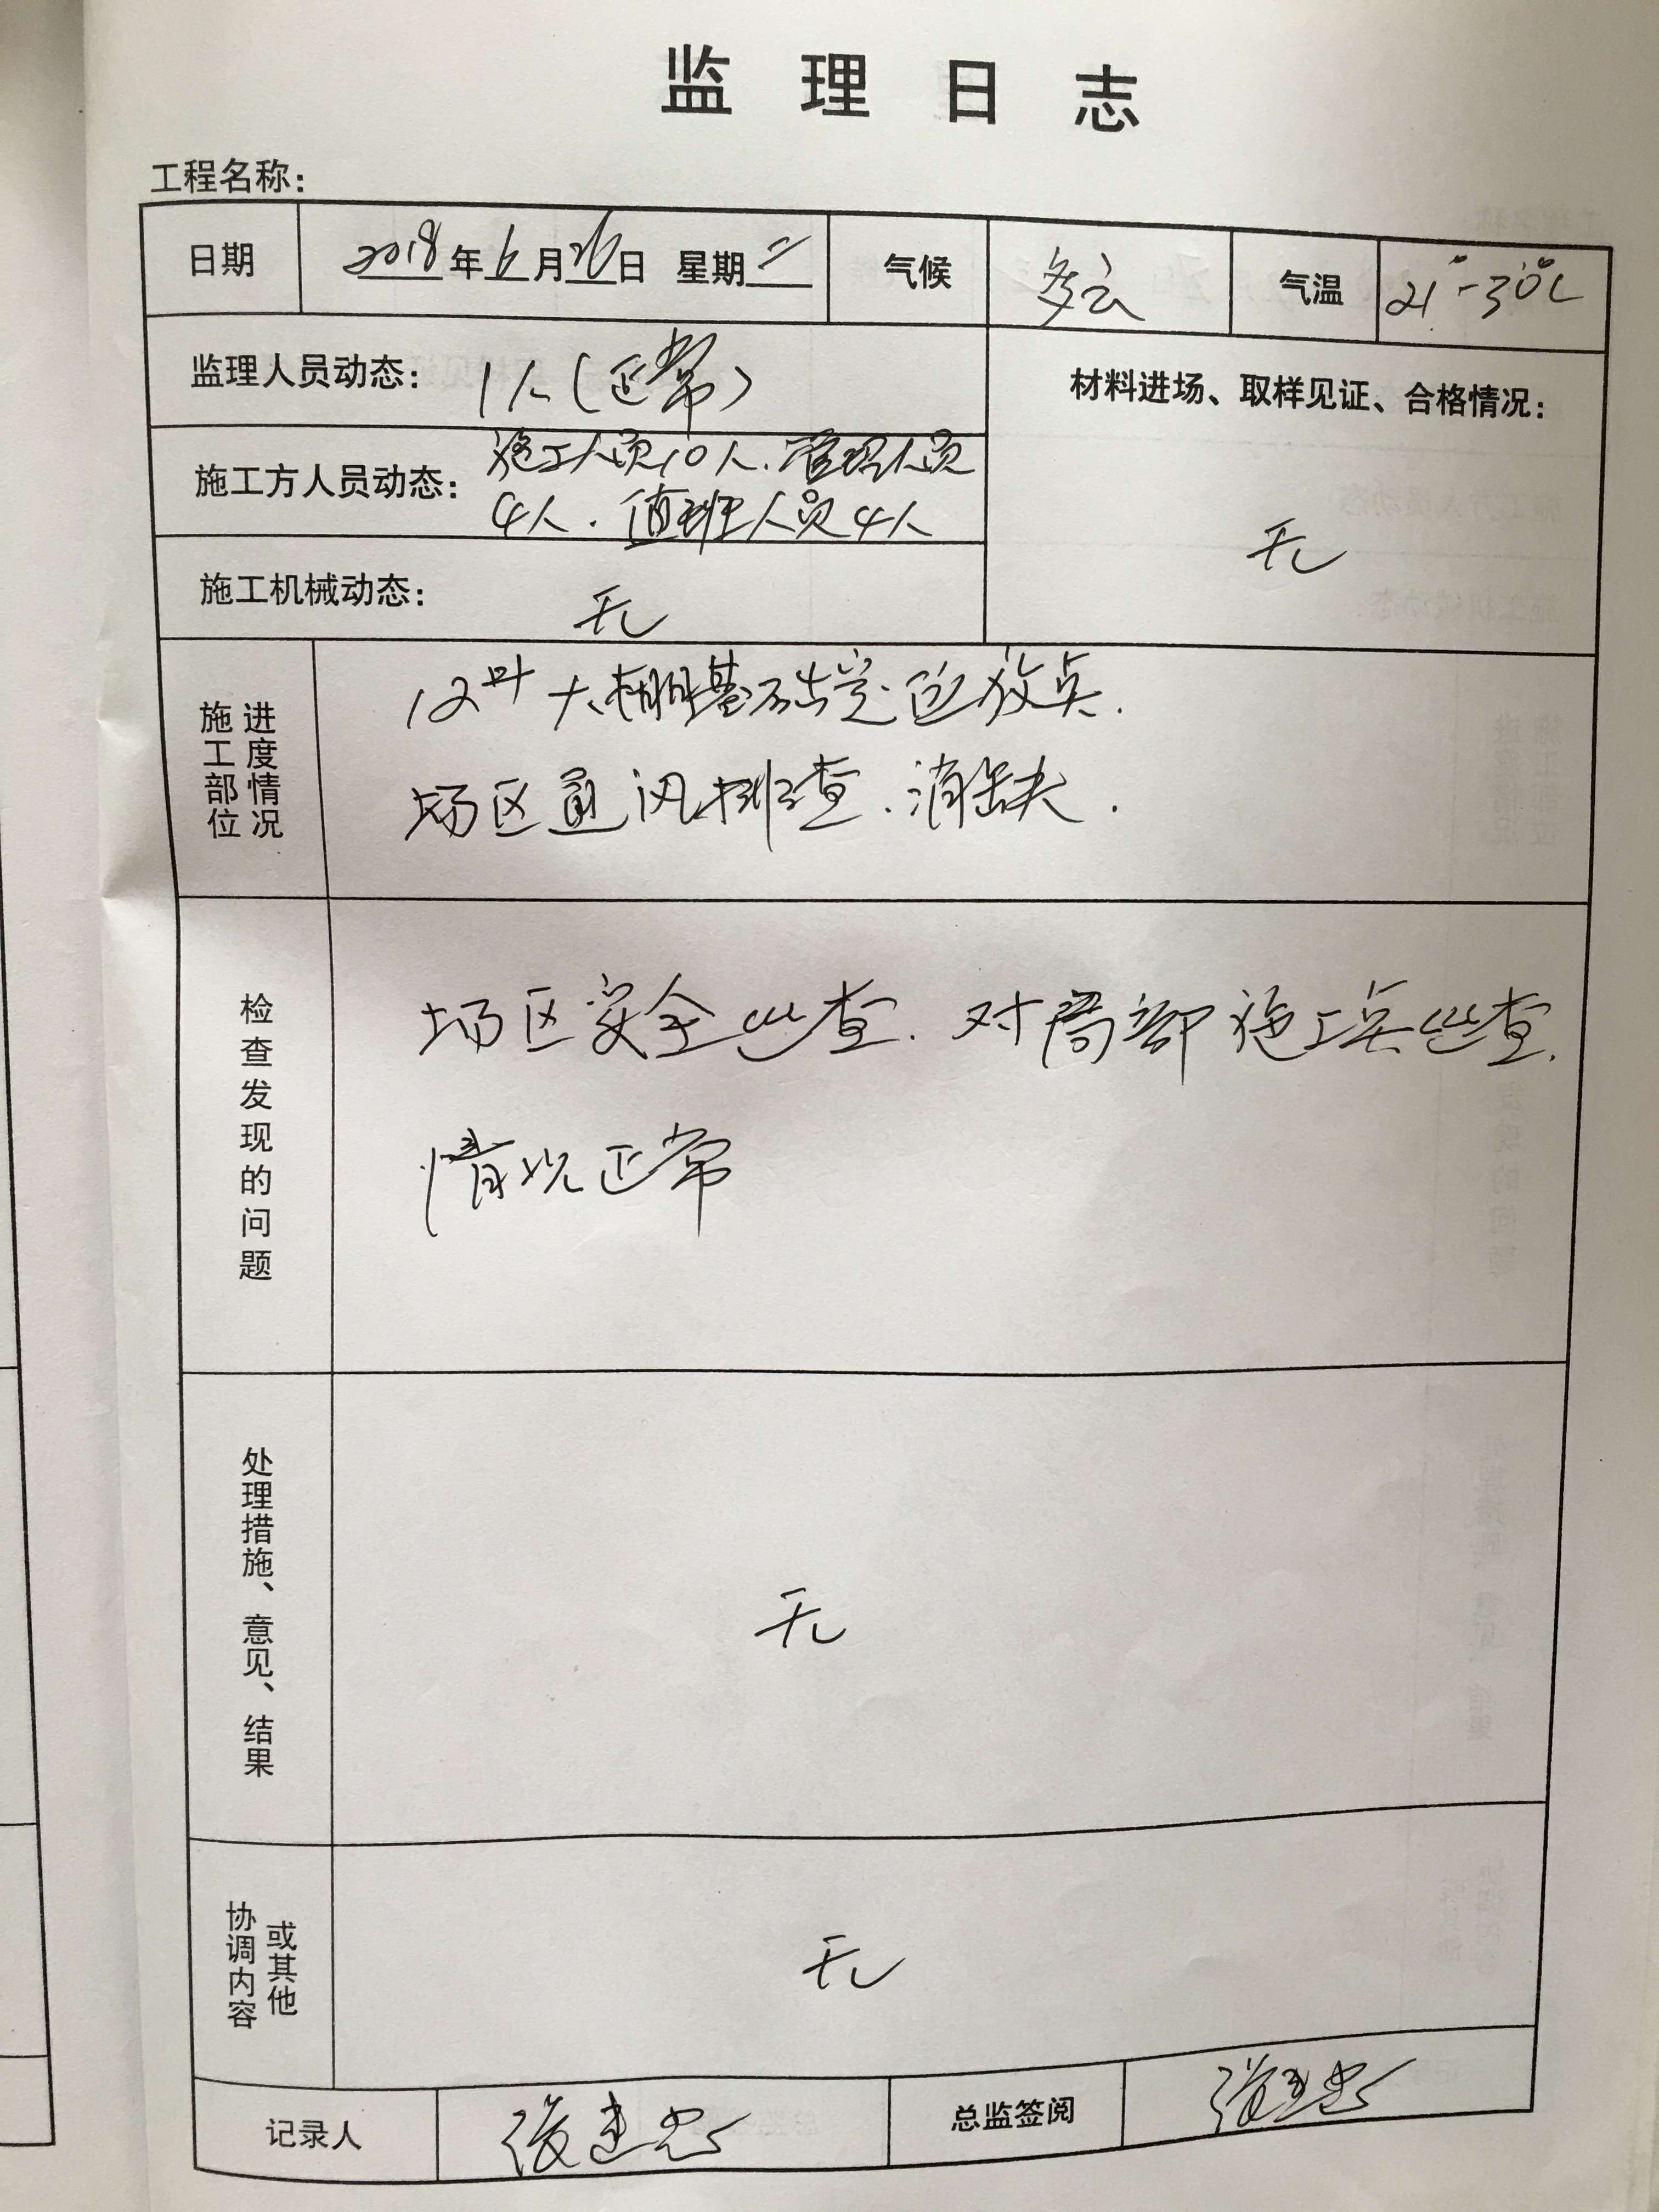 监理日志
工程名称:
日期 2018年6月26日 星期二 气候 多云 气温 21°-30℃
监理人员动态: 1人(正常)
材料进场、取样见证、合格情况:
无
施工方人员动态: 施工人员10人.管理人员
4人.值班人员4人
施工机械动态: 无
施工部位
进度情况
12# 大棚基础定位放点.
场区通风排查.消缺.
检查发现的问题
场区安全巡查.对局部施工点巡查.
情况正常
处理措施、意见、结果
无
协调内容
或其他
无
记录人 张建忠 总监签阅 张建忠